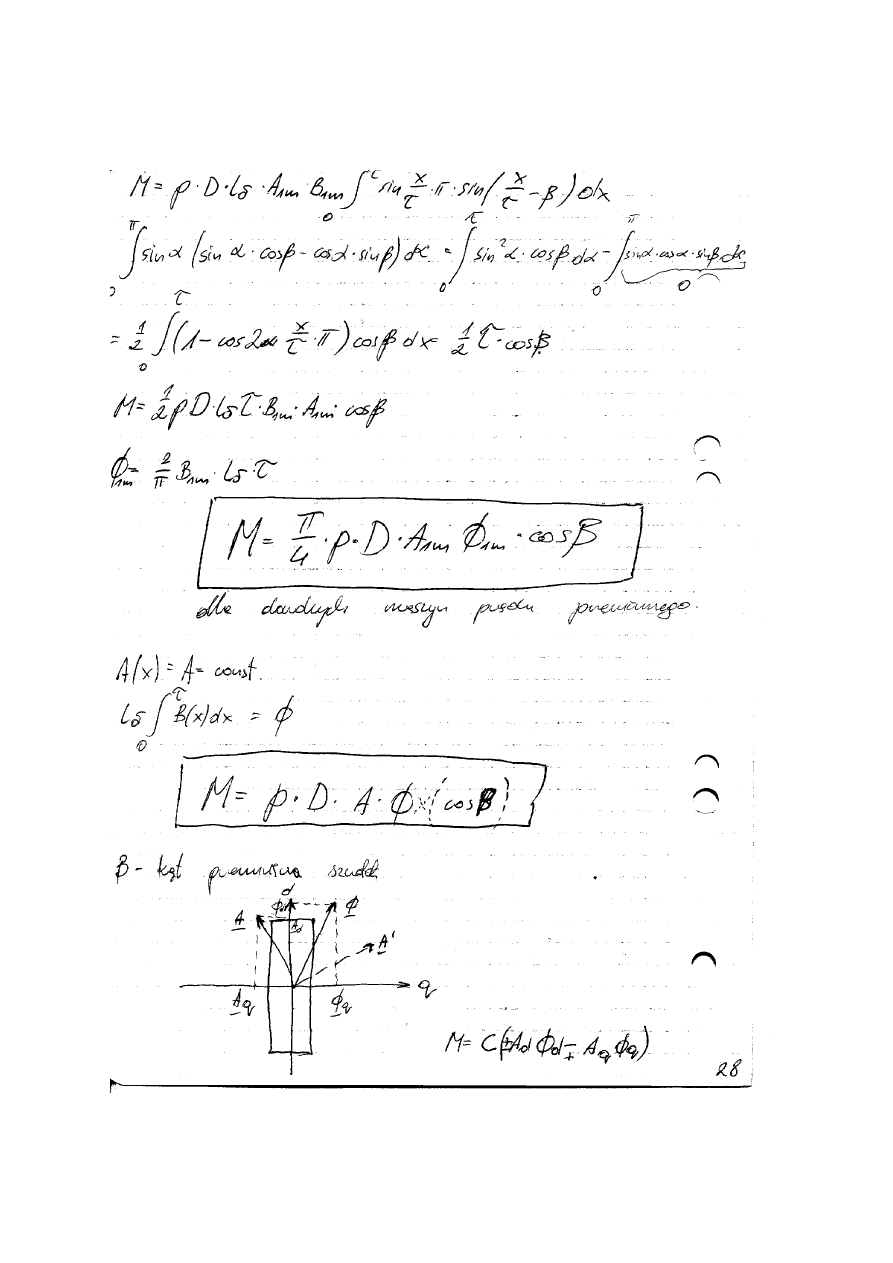 M = p · D · lδ · A₁ₘ B₁ₘ ∫₀^τ sin x/τ · π · sin(x/τ − β) dx
∫₀^π sin α (sin α · cos β − cos α · sin β) dα = ∫₀^τ sin² α · cos β dα − ∫₀^π sin α · cos α · sin β dα
0
= 1/2 ∫₀^τ (1 − cos 2 x/τ · π) cos β dx = 1/2 τ · cos β
M = 1/2 p D · lδ τ · B₁ₘ · A₁ₘ · cos β
ϕ₁ₘ = 2/π B₁ₘ · lδ · τ
M = π/4 · p · D · A₁ₘ ϕ₁ₘ · cos β
dla maszyn prądu przemiennego.
A(x) = A = const.
lδ ∫₀^τ B(x) dx = ϕ
M = p · D · A · ϕ × (cos β)
β – kąt przesunięcia
d
ϕd
ϕ
A
Ad
A'
q
Aq
ϕq
M = C(±Ad ϕd ∓ Aq ϕq)
28